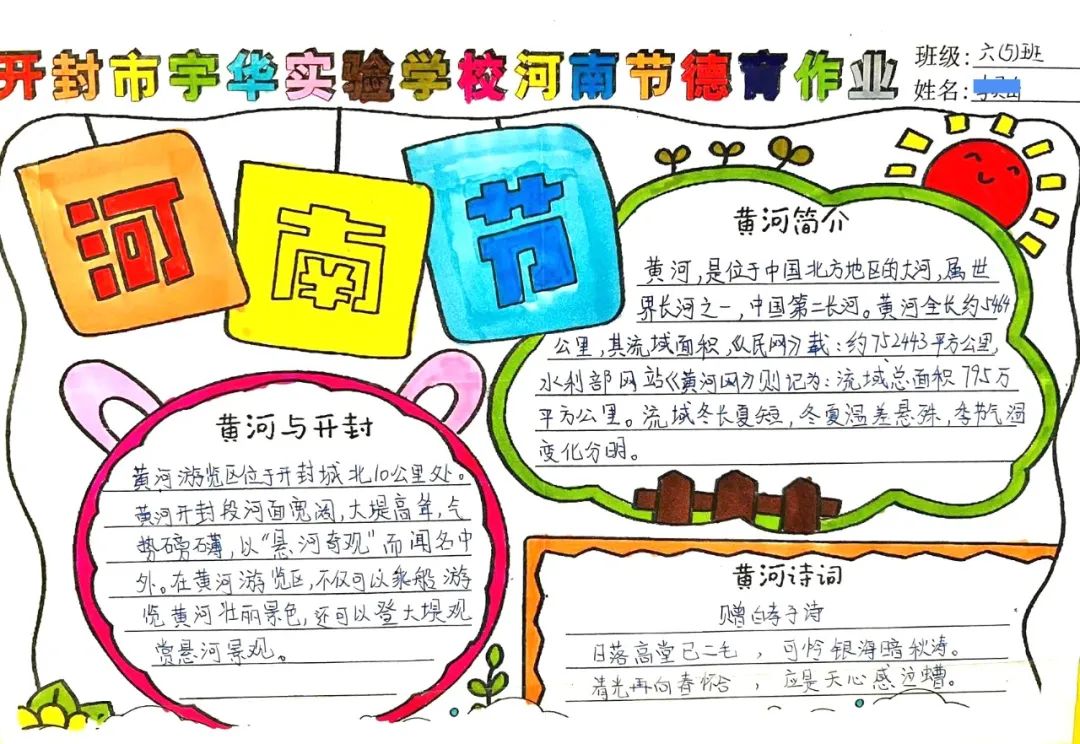 开封市宇华实验学校河南节德育作业
班级：六(5)班
姓名：
河南节
黄河简介
黄河，是位于中国北方地区的大河，属世
界长河之一，中国第二长河。黄河全长约5464
公里，其流域面积，《人民网》载：约752443平方公里，
水利部网站《黄河网》则记为：流域总面积795万
平方公里。流域冬长夏短，冬夏温差悬殊，季节气温
变化分明。
黄河与开封
黄河游览区位于开封城北10公里处。
黄河开封段河面宽阔，大堤高耸，气
势磅礴，以“悬河奇观”而闻名中
外。在黄河游览区，不仅可以乘般游
览黄河壮丽景色，还可以登大坝观
赏悬河景观。
黄河诗词
赠白孝子诗
日落高堂已二毛，可怜银海暗秋涛。
清光再向春怀合，应是天心感泣。